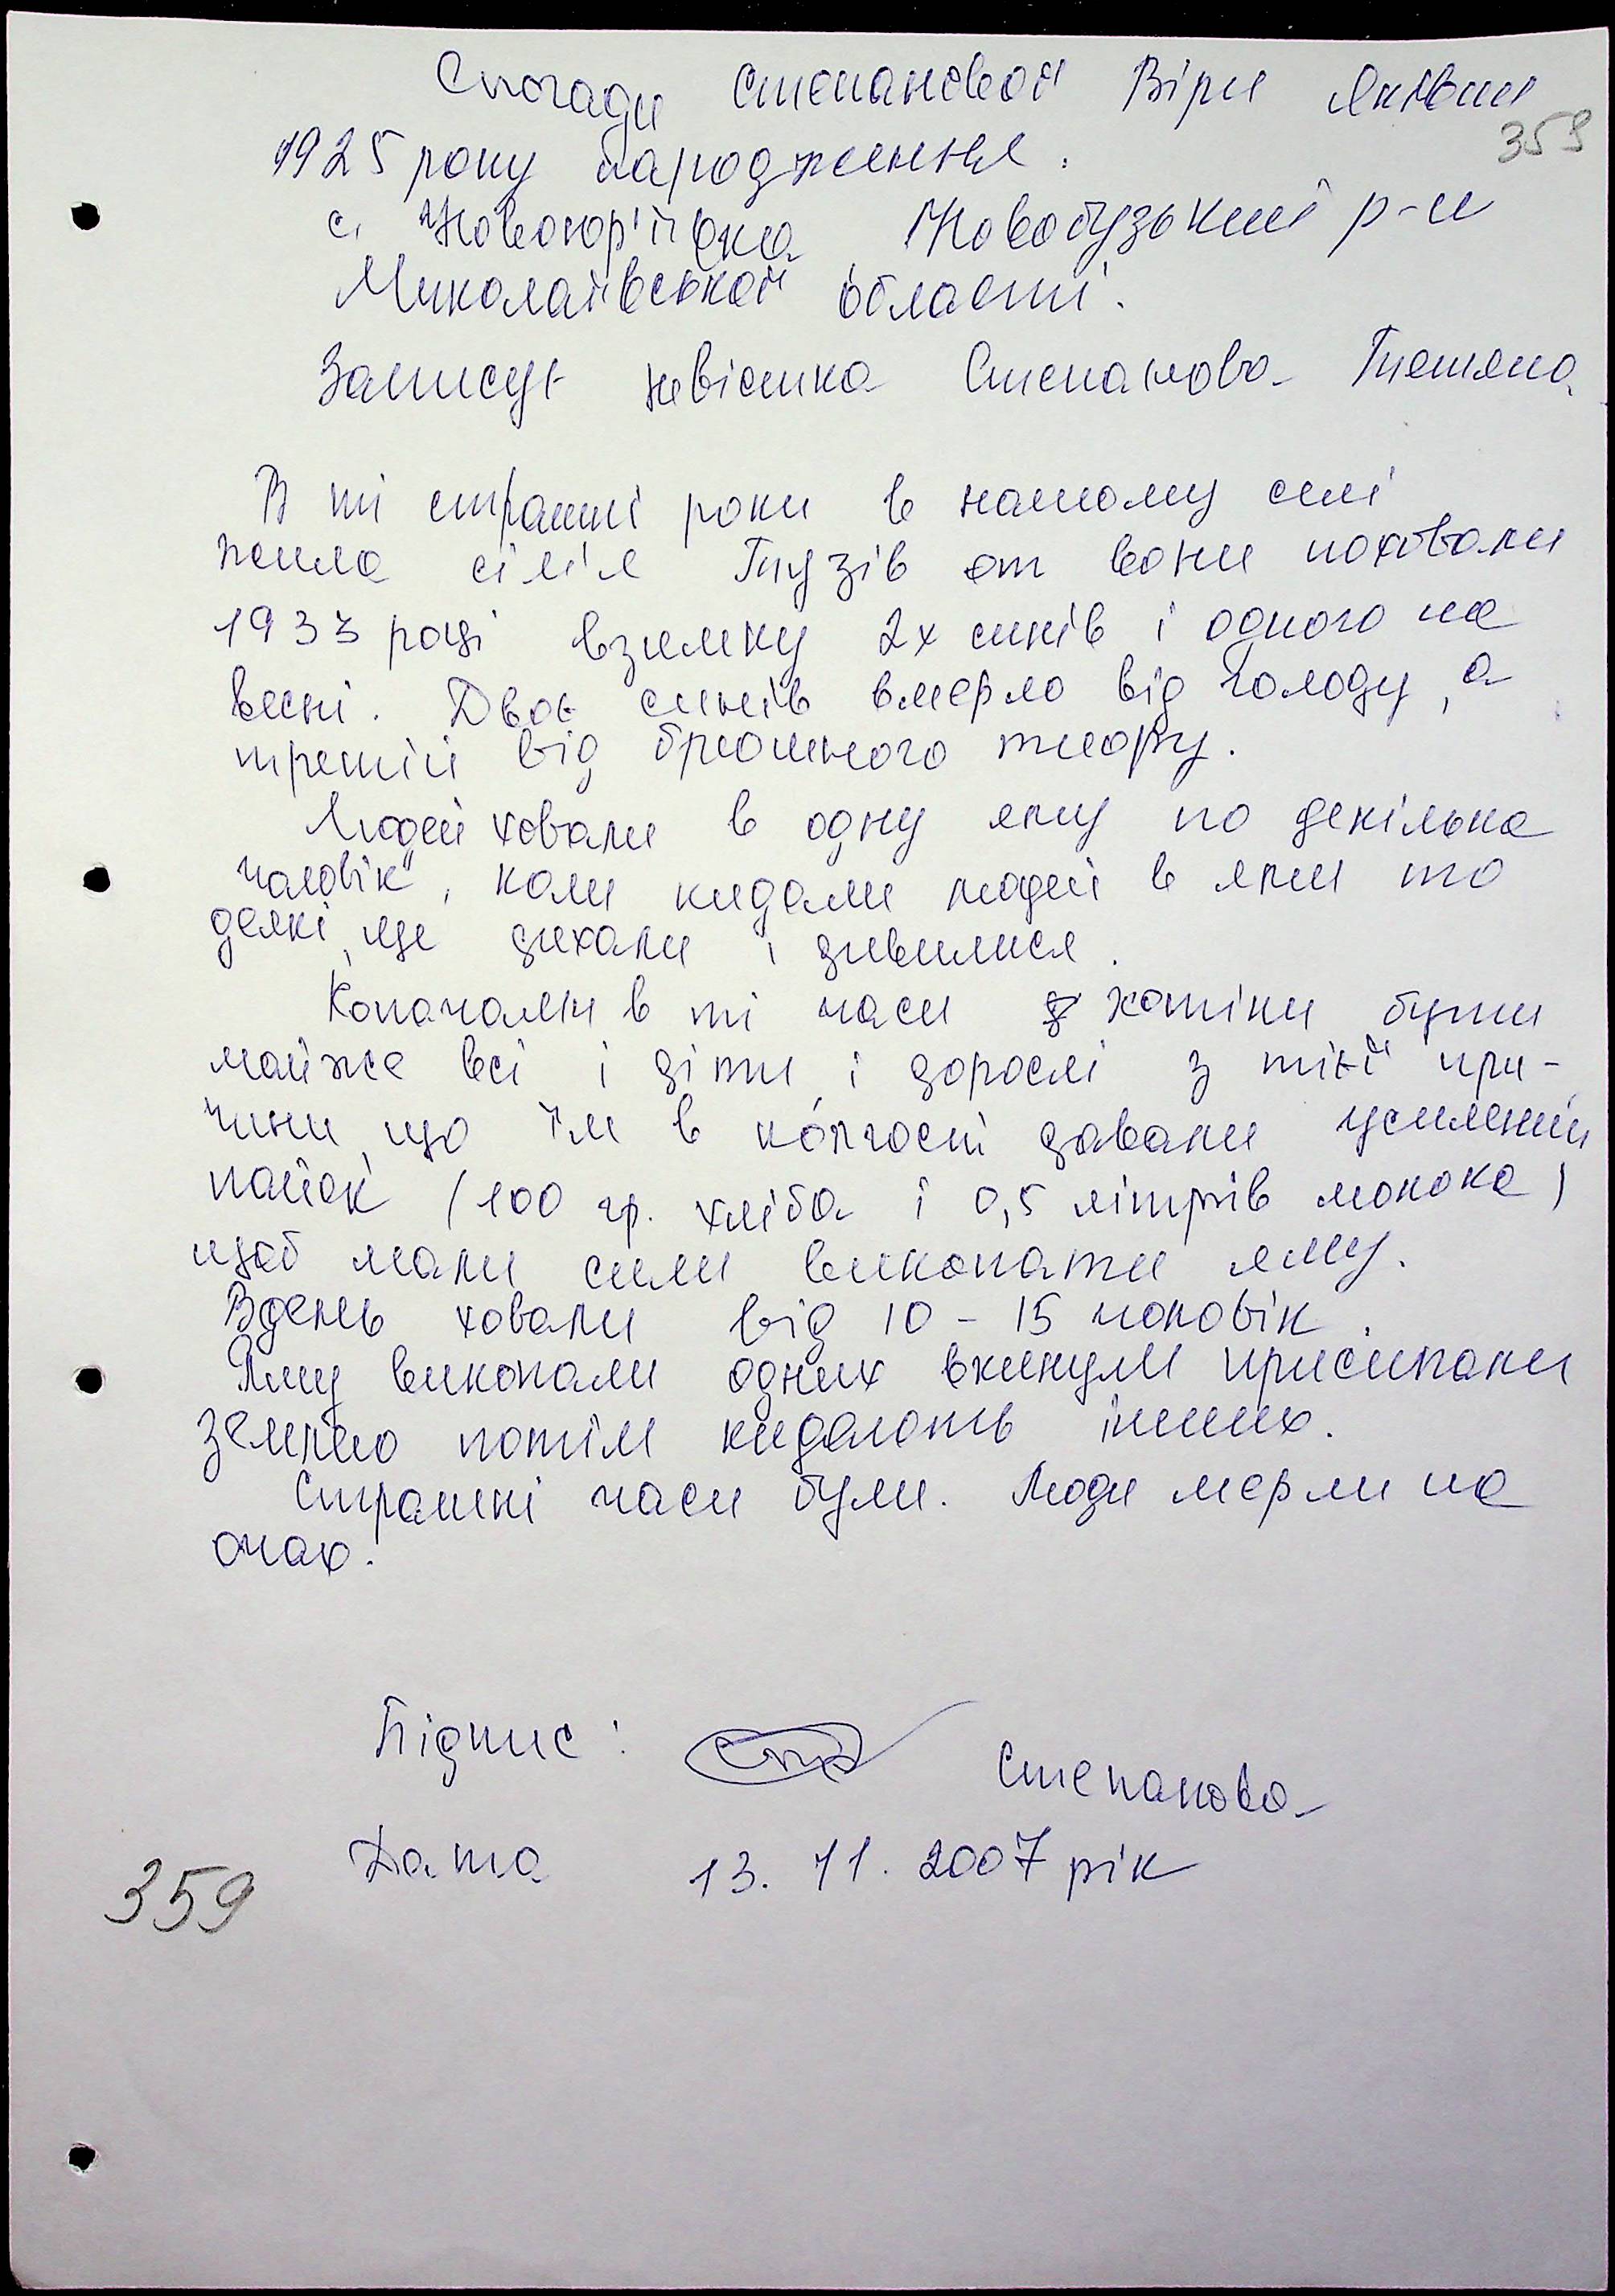 Спогади Степанової Віри Яківни
359
1925 року народження.
с. Новоюр'ївка Новобузький р-н
Миколаївської області.
Записує невістка Степанова Тетяна
В ті страшні роки в нашому селі
жила сім'я Гнузів от вони поховали
1933 році взимку 2х синів і одного на
весні. Двоє синів вмерло від голоду, а
третій від брюшного тифу.
Людей ховали в одну яму по декілька
чоловік, коли кидали людей в ями то
деякі ще дихали і дивилися.
Копачами в ті часи хотіли бути
майже всі і діти і дорослі з тієї при-
чини що їм в колгоспі давали усилений
пайок (100 гр. хліба і 0,5 літрів молока)
щоб мали сили викопати яму.
Вдень ховали від 10 - 15 чоловік.
Яму викопали одних вкинули присипали
землею потім кидають інших.
Страшні часи були. Люди мерли на
очах.
Підпис: Степанова
Дата 13. 11. 2007 рік
359